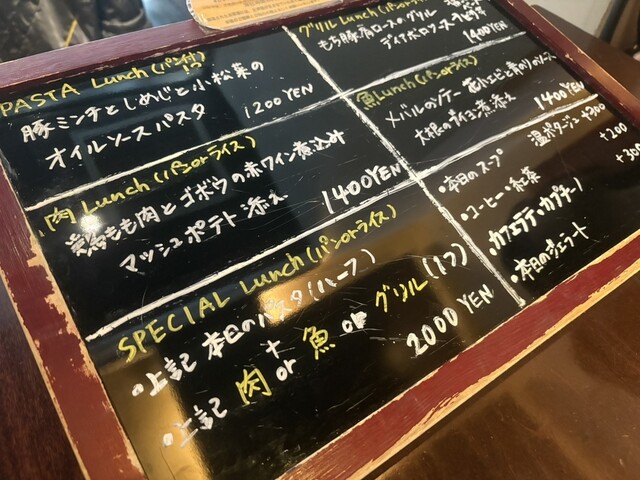 PASTA Lunch (パン付)
豚ミンチとしめじと小松菜の
オイルソースパスタ
1200 YEN
肉 Lunch (パン or ライス)
もも肉とゴボウの赤ワイン煮込み
マッシュポテト添え
1400 YEN
SPECIAL Lunch (パン or ライス)
・上記 本日のパスタ (ハーフ)
+
・上記 肉 or 魚 or グリル (ハーフ)
2000 YEN
グリル Lunch (パン or ライス)
もち豚肩ロースのグリル
ディアボロソース
1400 YEN
魚 Lunch (パン or ライス)
メバルのソテー
大根の煮添え
1400 YEN
・本日のスープ
温ポタージュ +300
・コーヒー・紅茶
+200
・カフェラテ・カプチーノ
+300
・本日のジェラート